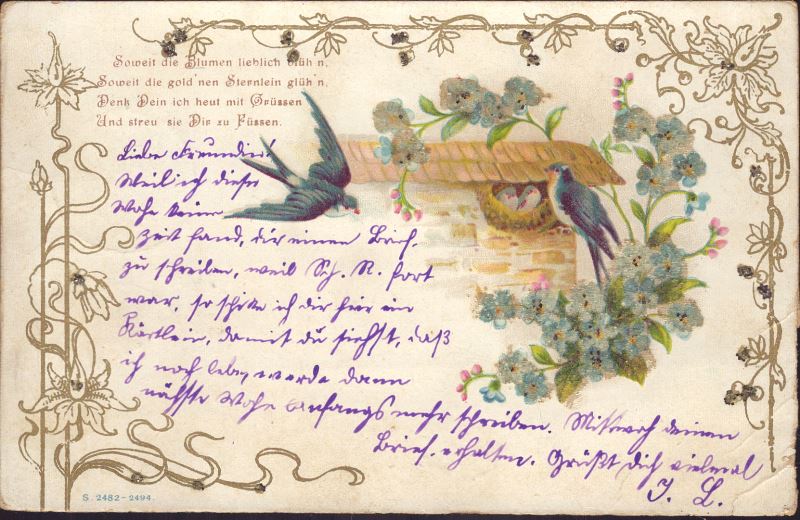 Soweit die Blumen lieblich blüh'n,
Soweit die gold'nen Sternlein glüh'n,
Denk Dein ich heut mit Grüssen
Und streu sie Dir zu Füssen.
Liebe Freundin!
Weil ich diese
Wohe keine
Zeit fand, dir einen Brief
zu schreiben, weil Sch. R. fort
war, so schike ich dir hier ein
Kärtlein, damit du siehst, daß
ich noch lebe, werde dann
nähste Wohe anfangs mehr schreiben. Mittwoch deinen
Brief erhalten. Grüßt dich vielmal
J. L.
S. 2482-2494.